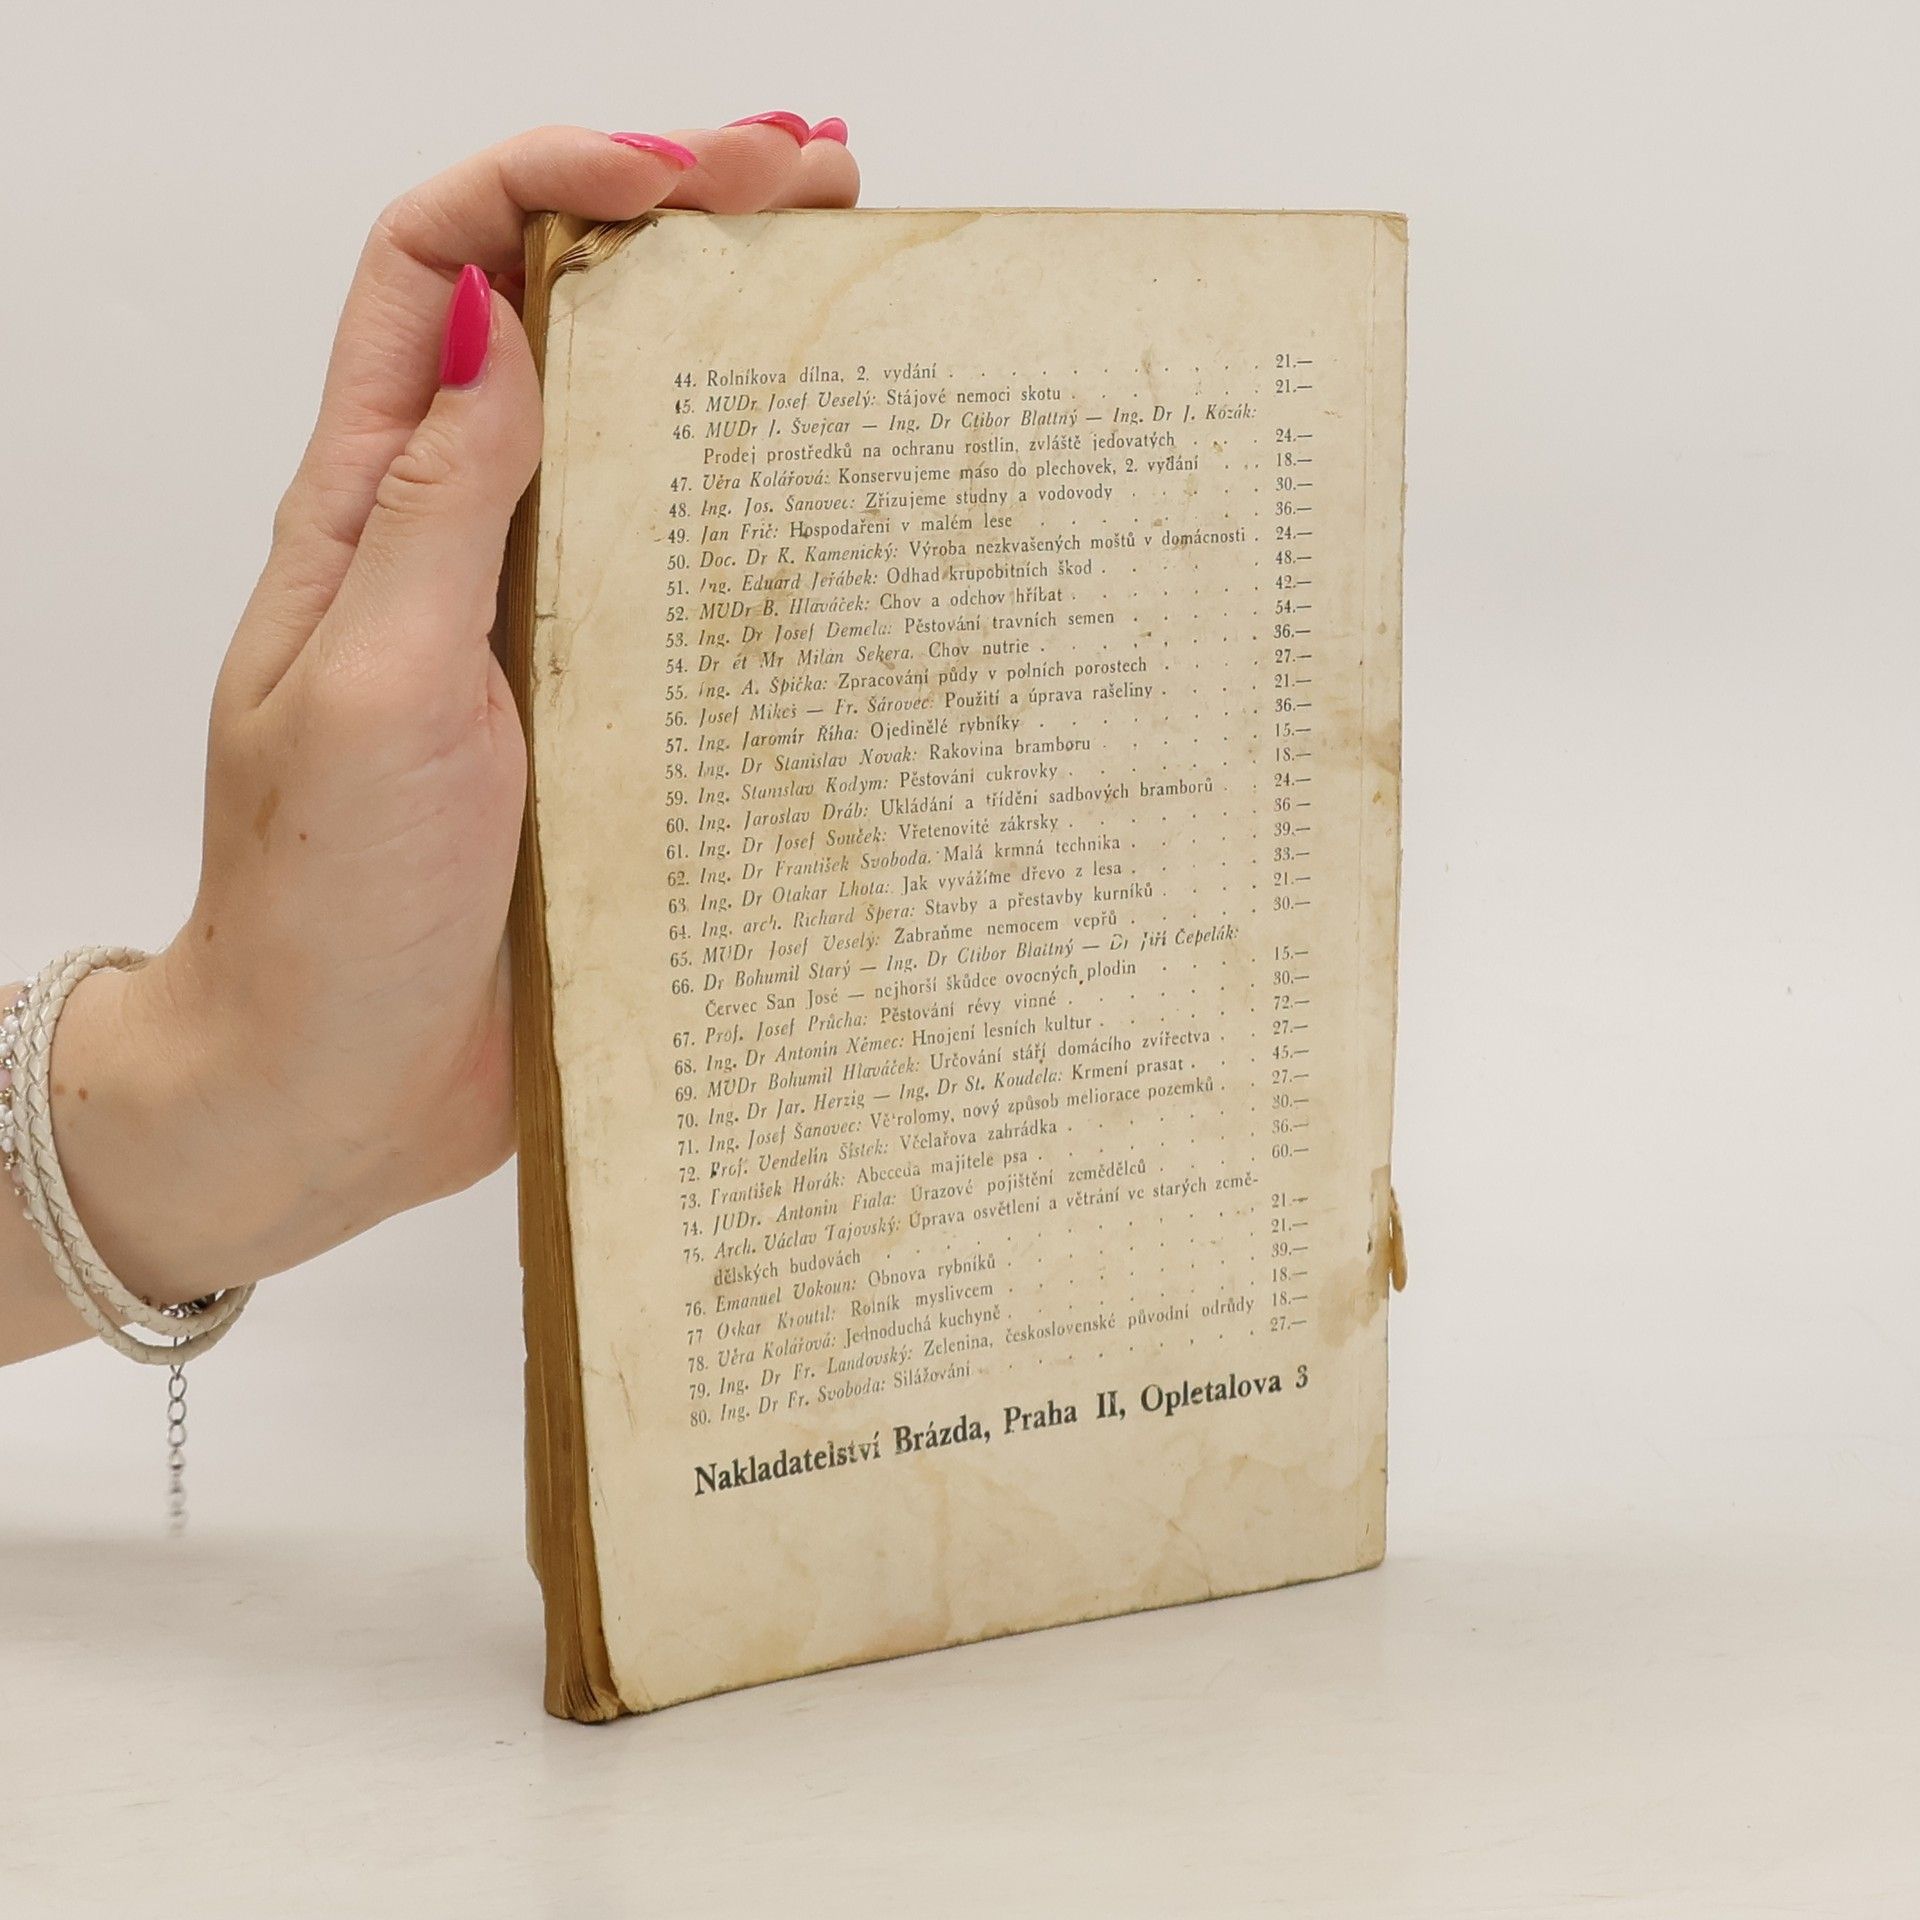 44. Rolníkova dílna, 2. vydání . . . . . . . . . . . 21.—
45. MUDr Josef Veselý: Stájové nemoci skotu . . . . . . . 21.—
46. MUDr J. Švejcar — Ing. Dr Ctibor Blattný — Ing. Dr J. Kozák:
Prodej prostředků na ochranu rostlin, zvláště jedovatých . . . 24.—
47. Věra Kolářová: Konservujeme maso do plechovek, 2. vydání . . . 18.—
48. Ing. Jos. Šanovec: Zřizujeme studny a vodovody . . . . . 30.—
49. Jan Frič: Hospodaření v malém lese . . . . . . . . 36.—
50. Doc. Dr K. Kamenický: Výroba nezkvašených moštů v domácnosti . 24.—
51. Ing. Eduard Jeřábek: Odhad krupobitních škod . . . . . 48.—
52. MUDr B. Hlaváček: Chov a odchov hříbat . . . . . . . 42.—
53. Ing. Dr Josef Demela: Pěstování travních semen . . . . . 54.—
54. Dr et Mr Milan Sekera. Chov nutrie . . . . . . . . 36.—
55. Ing. A. Špička: Zpracování půdy v polních porostech . . . . 27.—
56. Josef Mikeš — Fr. Šárovec: Použití a úprava rašeliny . . . . 21.—
57. Ing. Jaromír Říha: Ojedinělé rybníky . . . . . . . . 36.—
58. Ing. Dr Stanislav Novák: Rakovina bramboru . . . . . . 15.—
59. Ing. Stanislav Kodym: Pěstování cukrovky . . . . . . . 18.—
60. Ing. Jaroslav Dráb: Ukládání a třídění sadbových bramborů . . 24.—
61. Ing. Dr Josef Souček: Vřetenovité zákrsky . . . . . . . 36 —
62. Ing. Dr František Svoboda. Malá krmná technika . . . . . 39.—
63. Ing. Dr Otakar Lhota: Jak vyvážíme dřevo z lesa . . . . . 33.—
64. Ing. arch. Richard Špera: Stavby a přestavby kurníků . . . . 21.—
65. MUDr Josef Veselý: Zabraňme nemocem vepřů . . . . . 30.—
66. Dr Bohumil Starý — Ing. Dr Ctibor Blattný — Dr Jiří Čepelák:
Červec San José — nejhorší škůdce ovocných plodin . . . . 15.—
67. Prof. Josef Průcha: Pěstování révy vinné . . . . . . . 30.—
68. Ing. Dr Antonín Němec: Hnojení lesních kultur . . . . . . 72.—
69. MUDr Bohumil Hlaváček: Určování stáří domácího zvířectva . . 27.—
70. Ing. Dr Jar. Herzig — Ing. Dr St. Koudela: Krmení prasat . . . 45.—
71. Ing. Josef Šanovec: Větrolomy, nový způsob meliorace pozemků . . 27.—
72. Prof. Vendelín Šístek: Včelařova zahrádka . . . . . . . 30.—
73. František Horák: Abeceda majitele psa . . . . . . . . 36.—
74. JUDr. Antonín Fiala: Úrazové pojištění zemědělců . . . . 60.—
75. Arch. Václav Tajovský: Úprava osvětlení a větrání ve starých země-
dělských budovách . . . . . . . . . . . . . 21.—
76. Emanuel Vokoun: Obnova rybníků . . . . . . . . . 21.—
77 Oskar Kroutil: Rolník myslivcem . . . . . . . . . 39.—
78. Věra Kolářová: Jednoduchá kuchyně . . . . . . . . . 18.—
79. Ing. Dr Fr. Landovský: Zelenina, československé původní odrůdy 18.—
80. Ing. Dr Fr. Svoboda: Silážování . . . . . . . . . . 27.—
Nakladatelství Brázda, Praha II, Opletalova 3